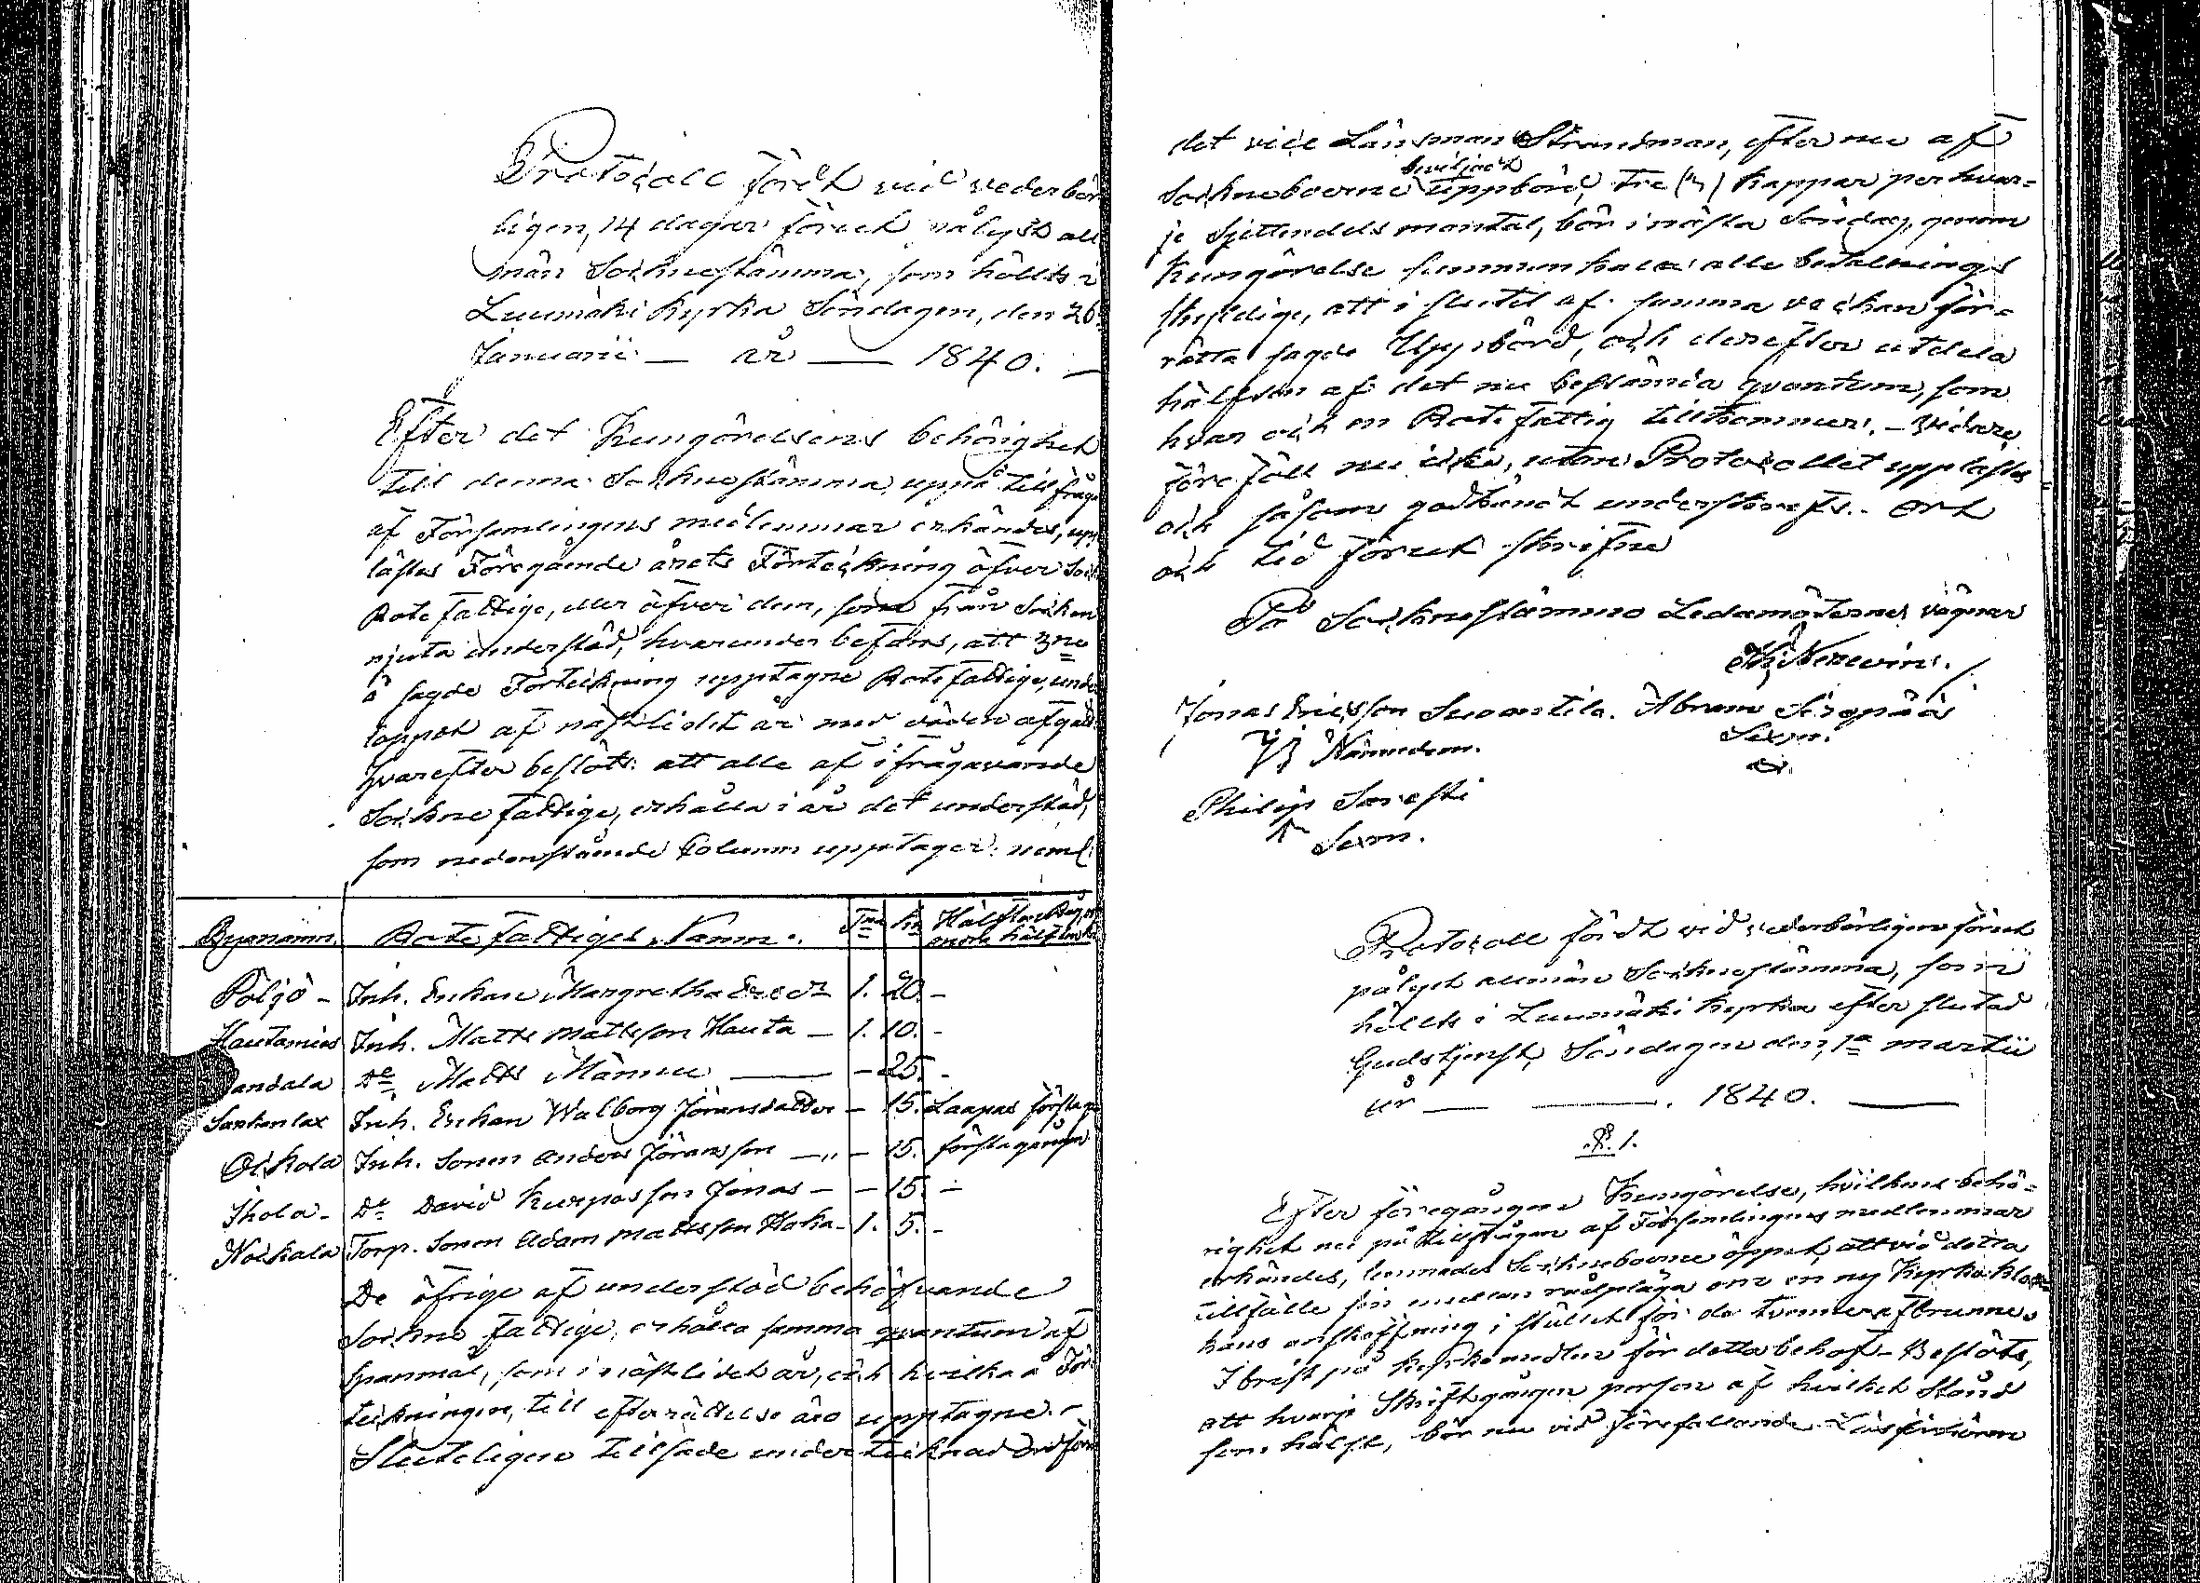 Protocoll fördt vid vederbör-
ligen, 14 dagar förut pålyst all
män Sockne stämma, som hölts i
Luumäki Kyrka Söndagen, den 26
Januarii — år — 1840. —
Efter det Kungörelsens behörighet
till denna Socknestämma, uppå tillfråga
af Församlingens medlemmar erkändes, upp
lästes Föregående årets Förteckning öfver Sock
Rote fattige, eller öfver dem, som från Socken
njuta understöd, hvarunder befans, att 3ne
å sagde Förteckning upptagne Rotefattige, unde
loppet af nästlidet år med döden afgådt
hvarefter beslöts: att alle af ifrågavarande
Sockne fattige, erhålla i år det understöd,
som nedanstående Column upptager: neml.
Bynamn Rote fattiges Namn. Tnr kr Hälften Råg, och
andra hälften
Poljo - Inh. Enkan Margretha 1. 20. -
Hautamies Inh. Matts Mattsson Hauta — 1. 10. -
andala Do Matts Mannu — - 25. -
Sarkenlax Inh. Enkan Walborg Jöransdotter — 15.
Oikola Inh. Sonen Anders Jöransson — 15. första gången
Ihola - Do David Jonas — - 15. -
Torp. Sonen Adam Mattsson Haka - 1. 5. -
De öfrige af understöd behöfvande
Sockne fattige, erhålla samma qvantum af
Spanmål, som i nästlidet år, och hvilka å För
teckningen, till efterrättelse äro upptagne. -
Sluteligen tillsade undertecknad Ordför
det vice Länsman Strandman, efter nu af
beviljadt
Sockneboerne uppbörd, tre (3) kappar per hvar-
je Sjettendels mantal, bör i nästa Söndag, genom
Kungörelse sammankalla alle betalnings
skyldige, att i slutet af samma veckan för-
rätta sagde Uppbörd, och derefter utdela
hälften af det nu bestämda qvantum, som
hvar och en Rote fattig tillkommer. - Vidare
föreföll nu icke, utan Protocollet upplästes
och såsom godkändt underskrefs. - Ort
och tid förut skrifne
På Sockne stämmo Ledamöternes vägnar
Jonas Ericsson Suoantila. Abram
Nämndem. Sexm.
Philip
Sexm.
Protocoll fördt vid vederbörligen förut
pålyst allmän Socknestämma, som
hölts i Luumäki Kyrka efter slutad
Gudstjenst, Söndagen den 1a martii
år — — . 1840. —
§. 1.
Efter föregången Kungörelse, hvilkens behö-
righet nu på tillfrågan af Församlingens medlemmar
erkändes, lemnades Sockneboerne öppet, att vid detta
tillfälle sin emellan rådpläga om en ny Kyrko klo
kans anskaffning i stället för de tvenne afbrunne.
I brist på Kyrko medlen för detta behof - Beslöts,
att hvarje Skriftgången person af hvilket Stånd
som hälst, bör nu vid förefallande